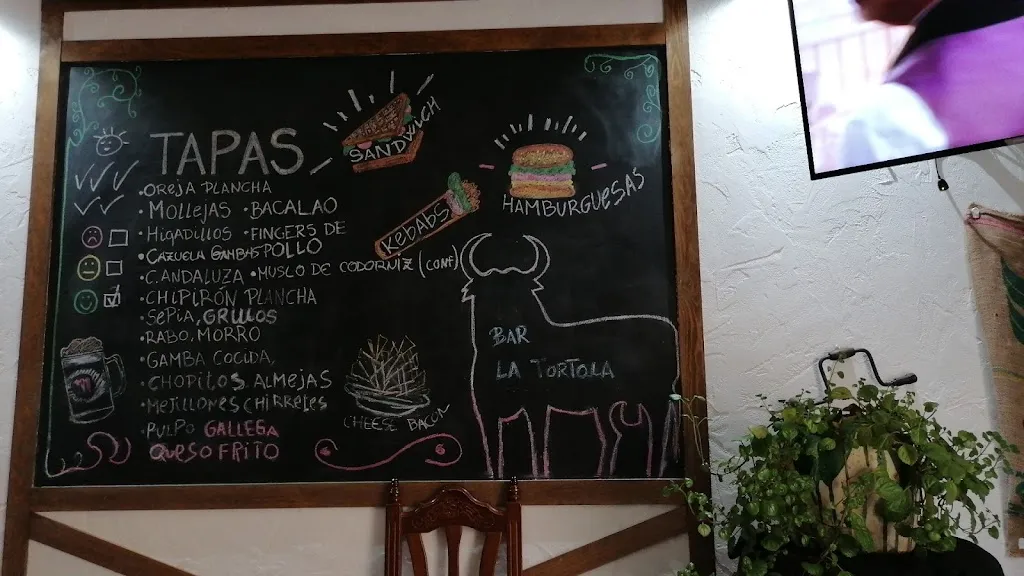 TAPAS
·OREJA PLANCHA
·MOLLEJAS ·BACALAO
·HIGADILLOS ·FINGERS DE POLLO
·CAZUELA GAMBAS
·CANDALUZA ·MUSLO DE CODORNIZ (CONF)
·CHIPIRÓN PLANCHA
·SEPIA, GRILLOS
·RABO, MORRO
·GAMBA COCIDA,
·CHOPITOS, ALMEJAS
·MEJILLONES CHIRRELES
·PULPO GALLEGA
QUESO FRITO
SANDWICH
HAMBURGUESAS
KEBABS
CHEESE BACON
BAR
LA TORTOLA